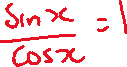 sinx
cosx =1